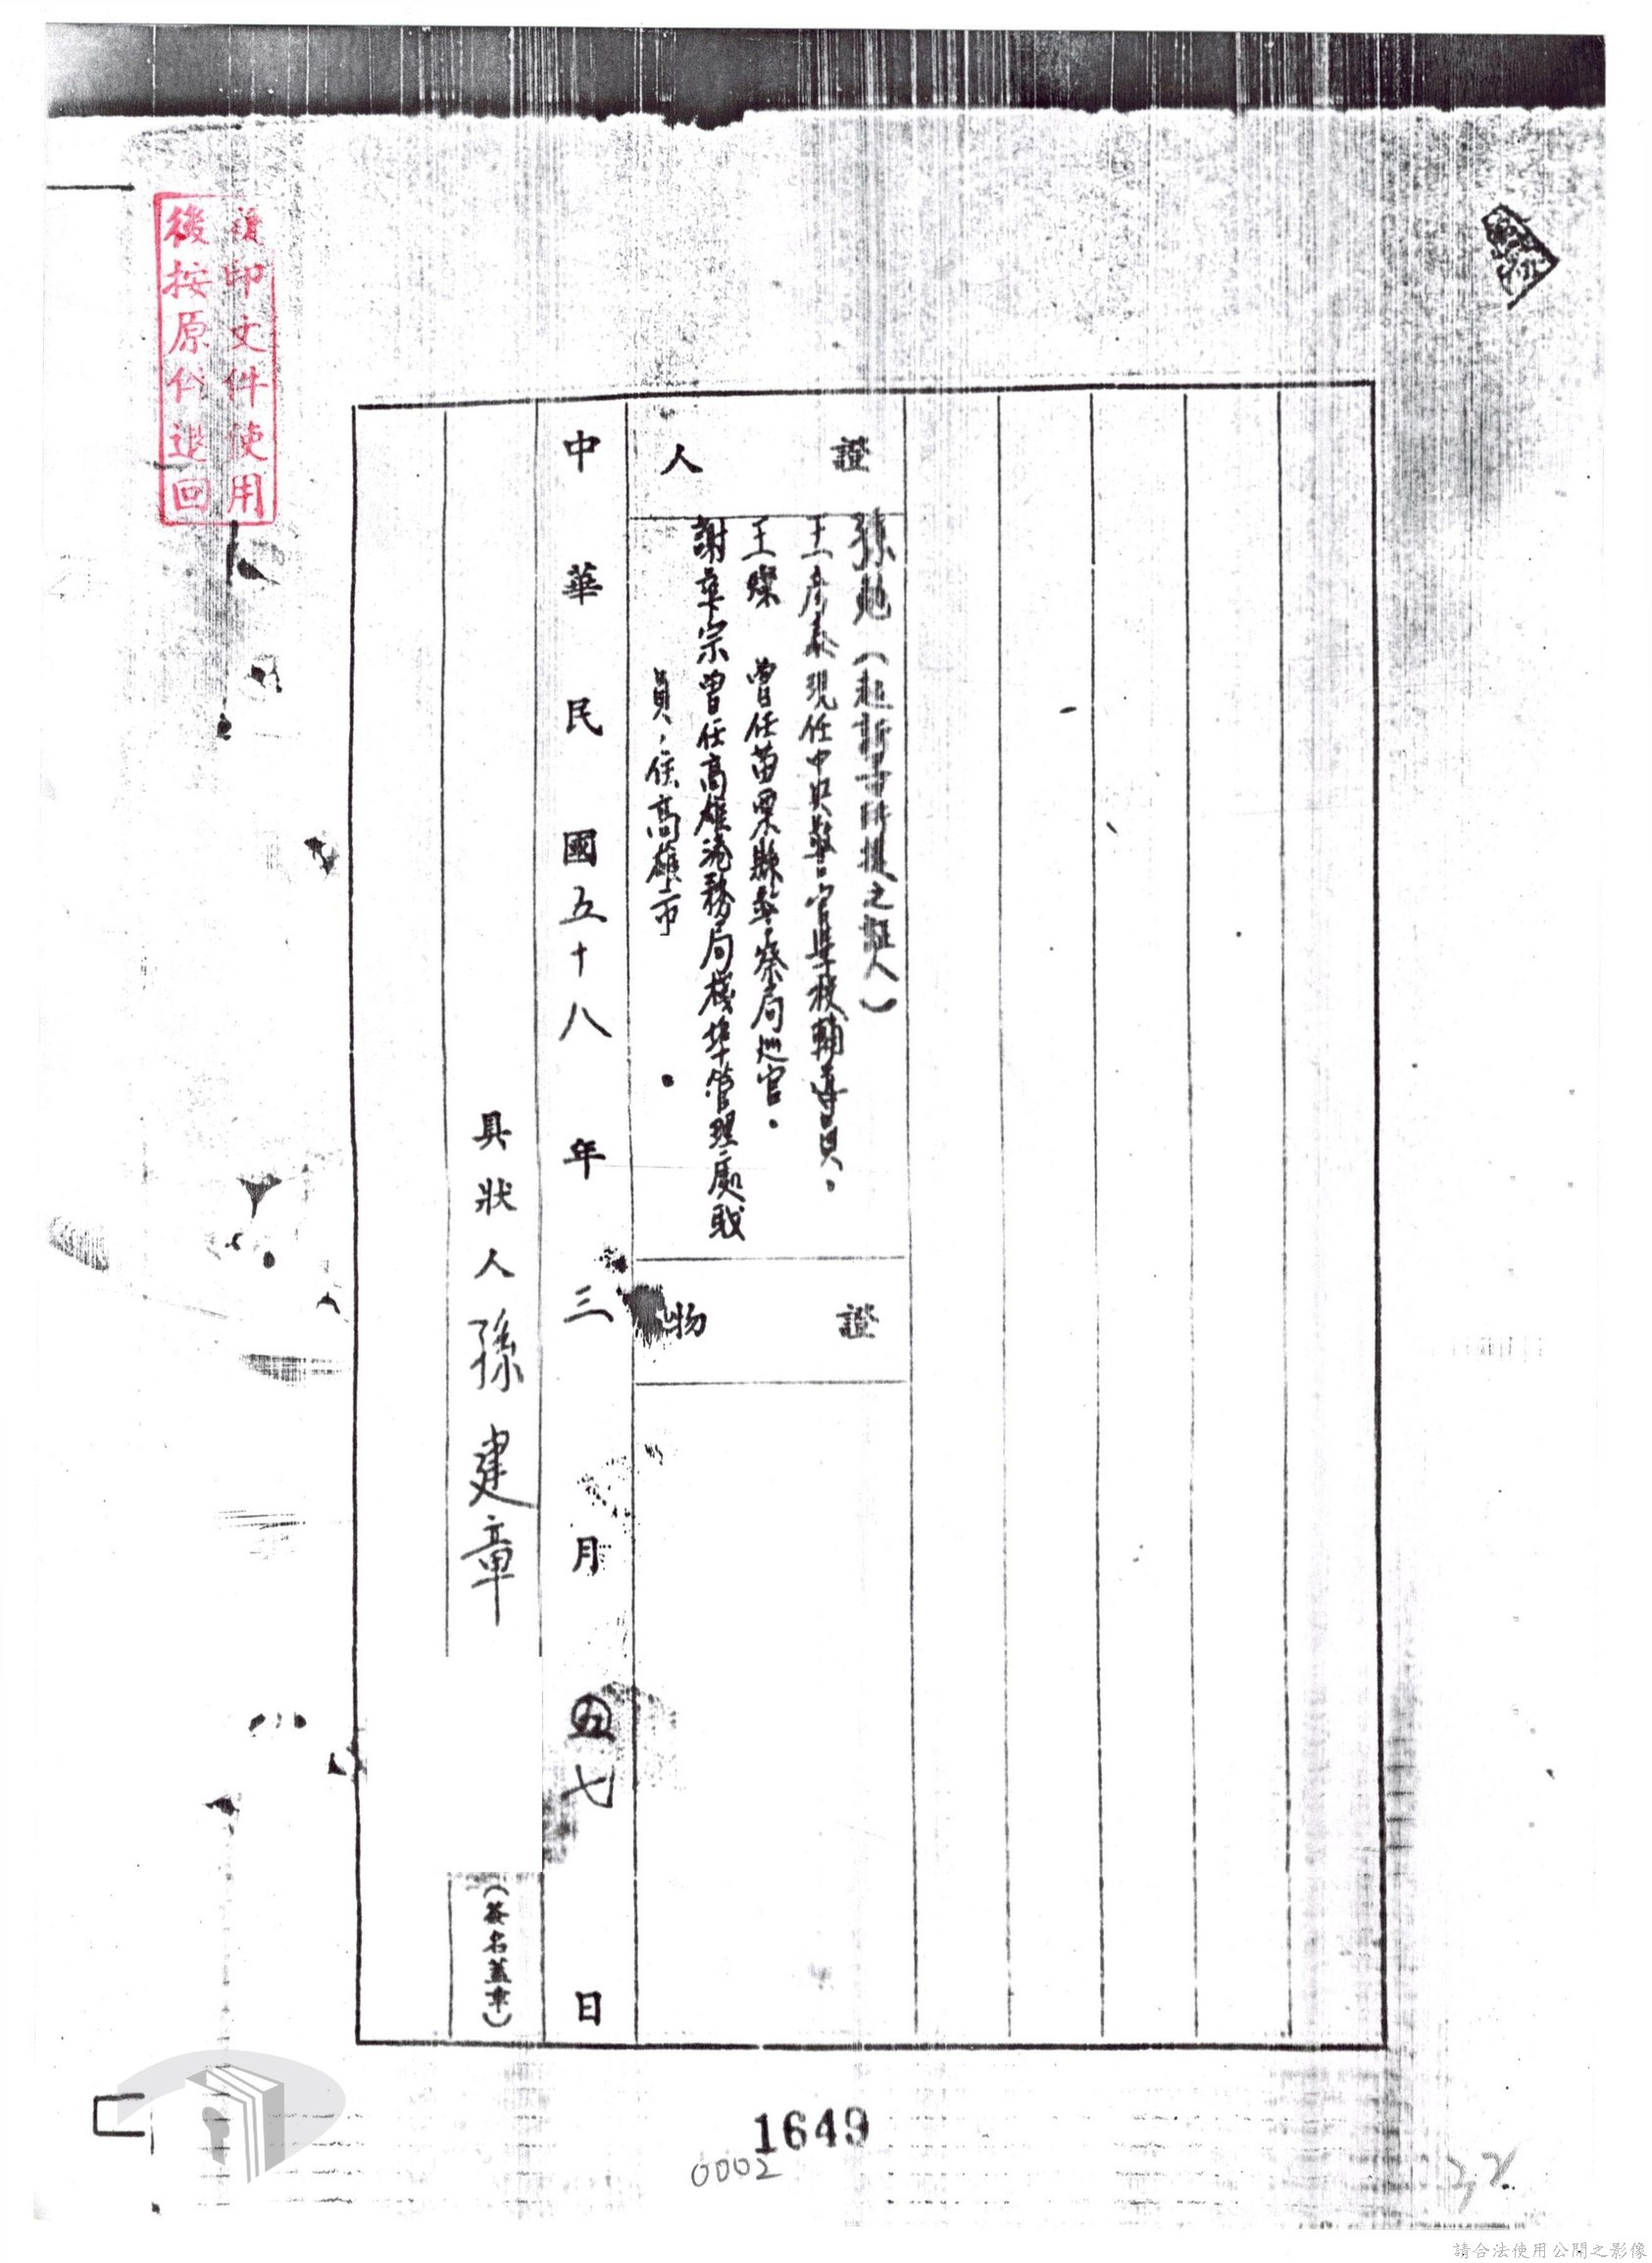 證人
孫勉（起訴書所提之証人）
王彥泰現任中央警官學校輔導員。
王燦　曾任苗栗縣警察局巡官。
謝章宗曾任高雄港務局棧埠管理處職
員，住高雄市
證物
中華民國五十八年三月五七日
具狀人孫建章
（簽名蓋章）
印文件使用
後按原件退回
1649
0002
請合法使用公開之影像